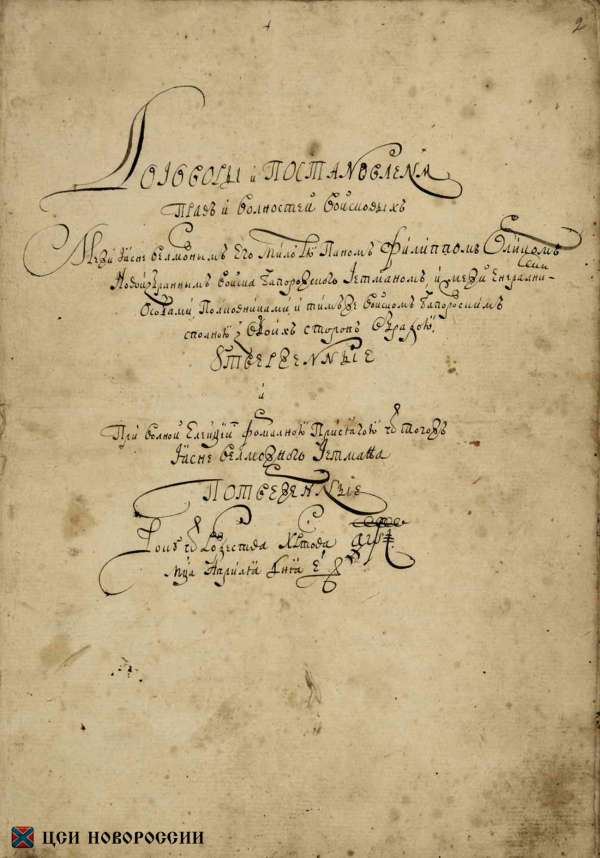 2
Договоры и постановленя
Правъ и волностей войсковыхъ
Межи Ясне велможнымъ Его Милостю Паномъ Филиппомъ Орликомъ
Новоизбраннымъ войска Запорожского Гетманомъ, и межи Енералними
Особами, Полковниками и тимъже войскомъ Запорожскимъ
сполною з обоихъ сторонъ обрадою
Ѹтверженные
и
При волной Елекции Фомалною Присягою ѿ тогожъ
Ясне велможного Гетмана
Потверженные
Року ѿ Рождества Христова
Мца Априлія дня Е҃
ЦСИ НОВОРОССИИ